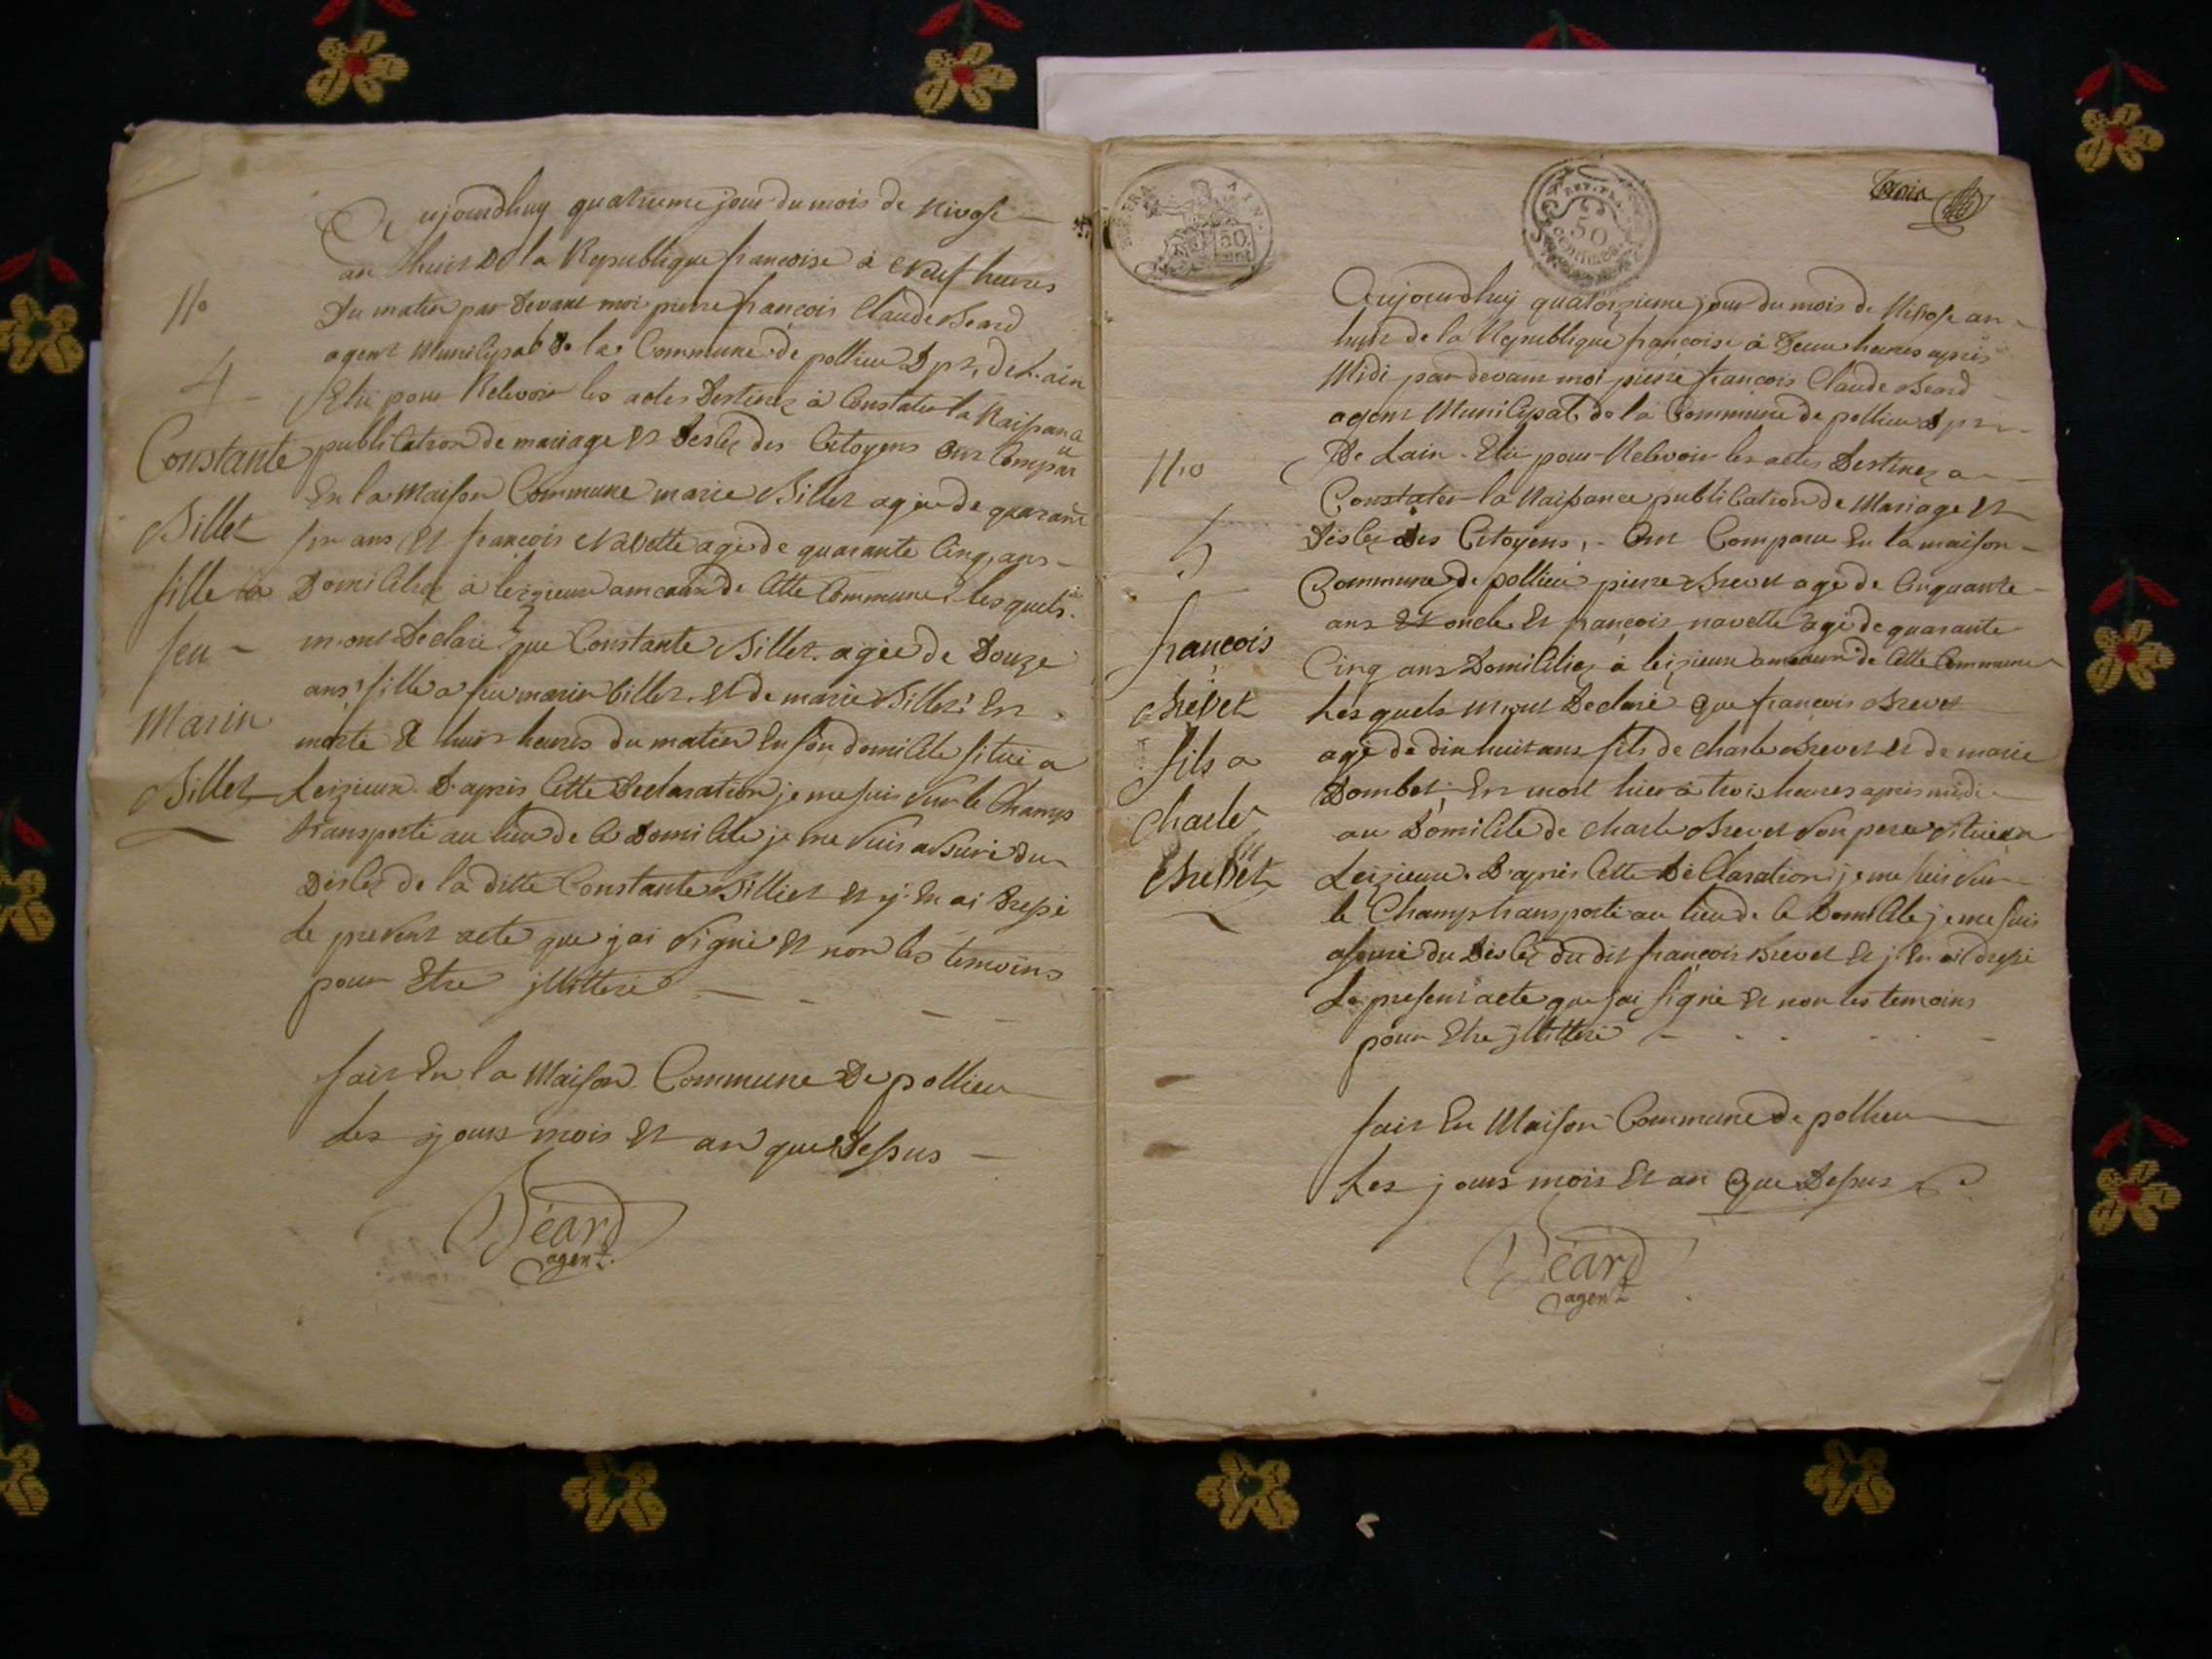 Aujourdhuy quatrieme jour du mois de Nivose
an huit De la Republique francoise à Neuf heures
Du matin par Devant moi pierre francois Claude Béard
agent Municipal De la Commune de pollieu Dpt. de L'ain
Elu pour Recevoir les actes Destinez à Constater la Naissance
publication de mariage et Desces des Citoyens ont Comparu
En la maison Commune marie Billet agée de quarante
six ans et françois Navette agé de quarante Cinq ans
Domiciliez à leizieux ameaux de Cette Commune lesquels
m'ont Declaré que Constante Billet agée de Douze
ans fille a feu marin billet et de marie Billet Est
morte à huit heures du matin En son domicile situé a
Leizieux. D'après Cette Declaration je me suis sur le Champ
transporté au lieu de Ce Domicile je me suis assuré du
Desces de la ditte Constante Billiet et j'En ai Dressé
Le present acte que jai signé et non les temoins
pour Etre jllitteré
fait En la Maison Commune De pollieu
Les jours mois Et an que Dessus
Béard
agent.
No
4
Constante
Billet
fille à
feu
Marin
Billet
REP. FRA
50
REP. FRA.
50
Centimes
Trois
Aujourdhuy quatorzieme jour du mois de Nivose an
huit de la Republique françoise à Deux heures après
Midi par devant moi pierre francois Claude Beard
agent Municipal de la Commune de pollieu dpt
De Lain Elu pour Recevoir les actes Destinez a
Constater la Naissance publication de Mariage et
Desces des Citoyens, Ont Comparu En la maison
Commune de pollieu pierre Brevet agé de Cinquante
ans et oncle Et françois navette agé de quarante
Cinq ans Domiciliez à leizieux ameaux de Cette Commune
Lesquels m'ont Declaré Que françois Brevet
agé de dix huit ans fils de charle Brevet et de marie
Dombet Est mort hier à trois heures après midi
au Domicile de charle Brevet son pere situé a
Leizieux. D'après Cette Déclaration je me suis sur
le Champ transporté au lieu de Ce Domicile je me suis
assuré du Desces du dit françois Brevet Et j'En ai dressé
Le present acte que jai signé Et non les temoins
pour Etre jllitteré
fait En Maison Commune de pollieu
Les jours mois Et an Que Dessus
Béard
agent
No
5
françois
Brevet
fils a
Charle
Brevet